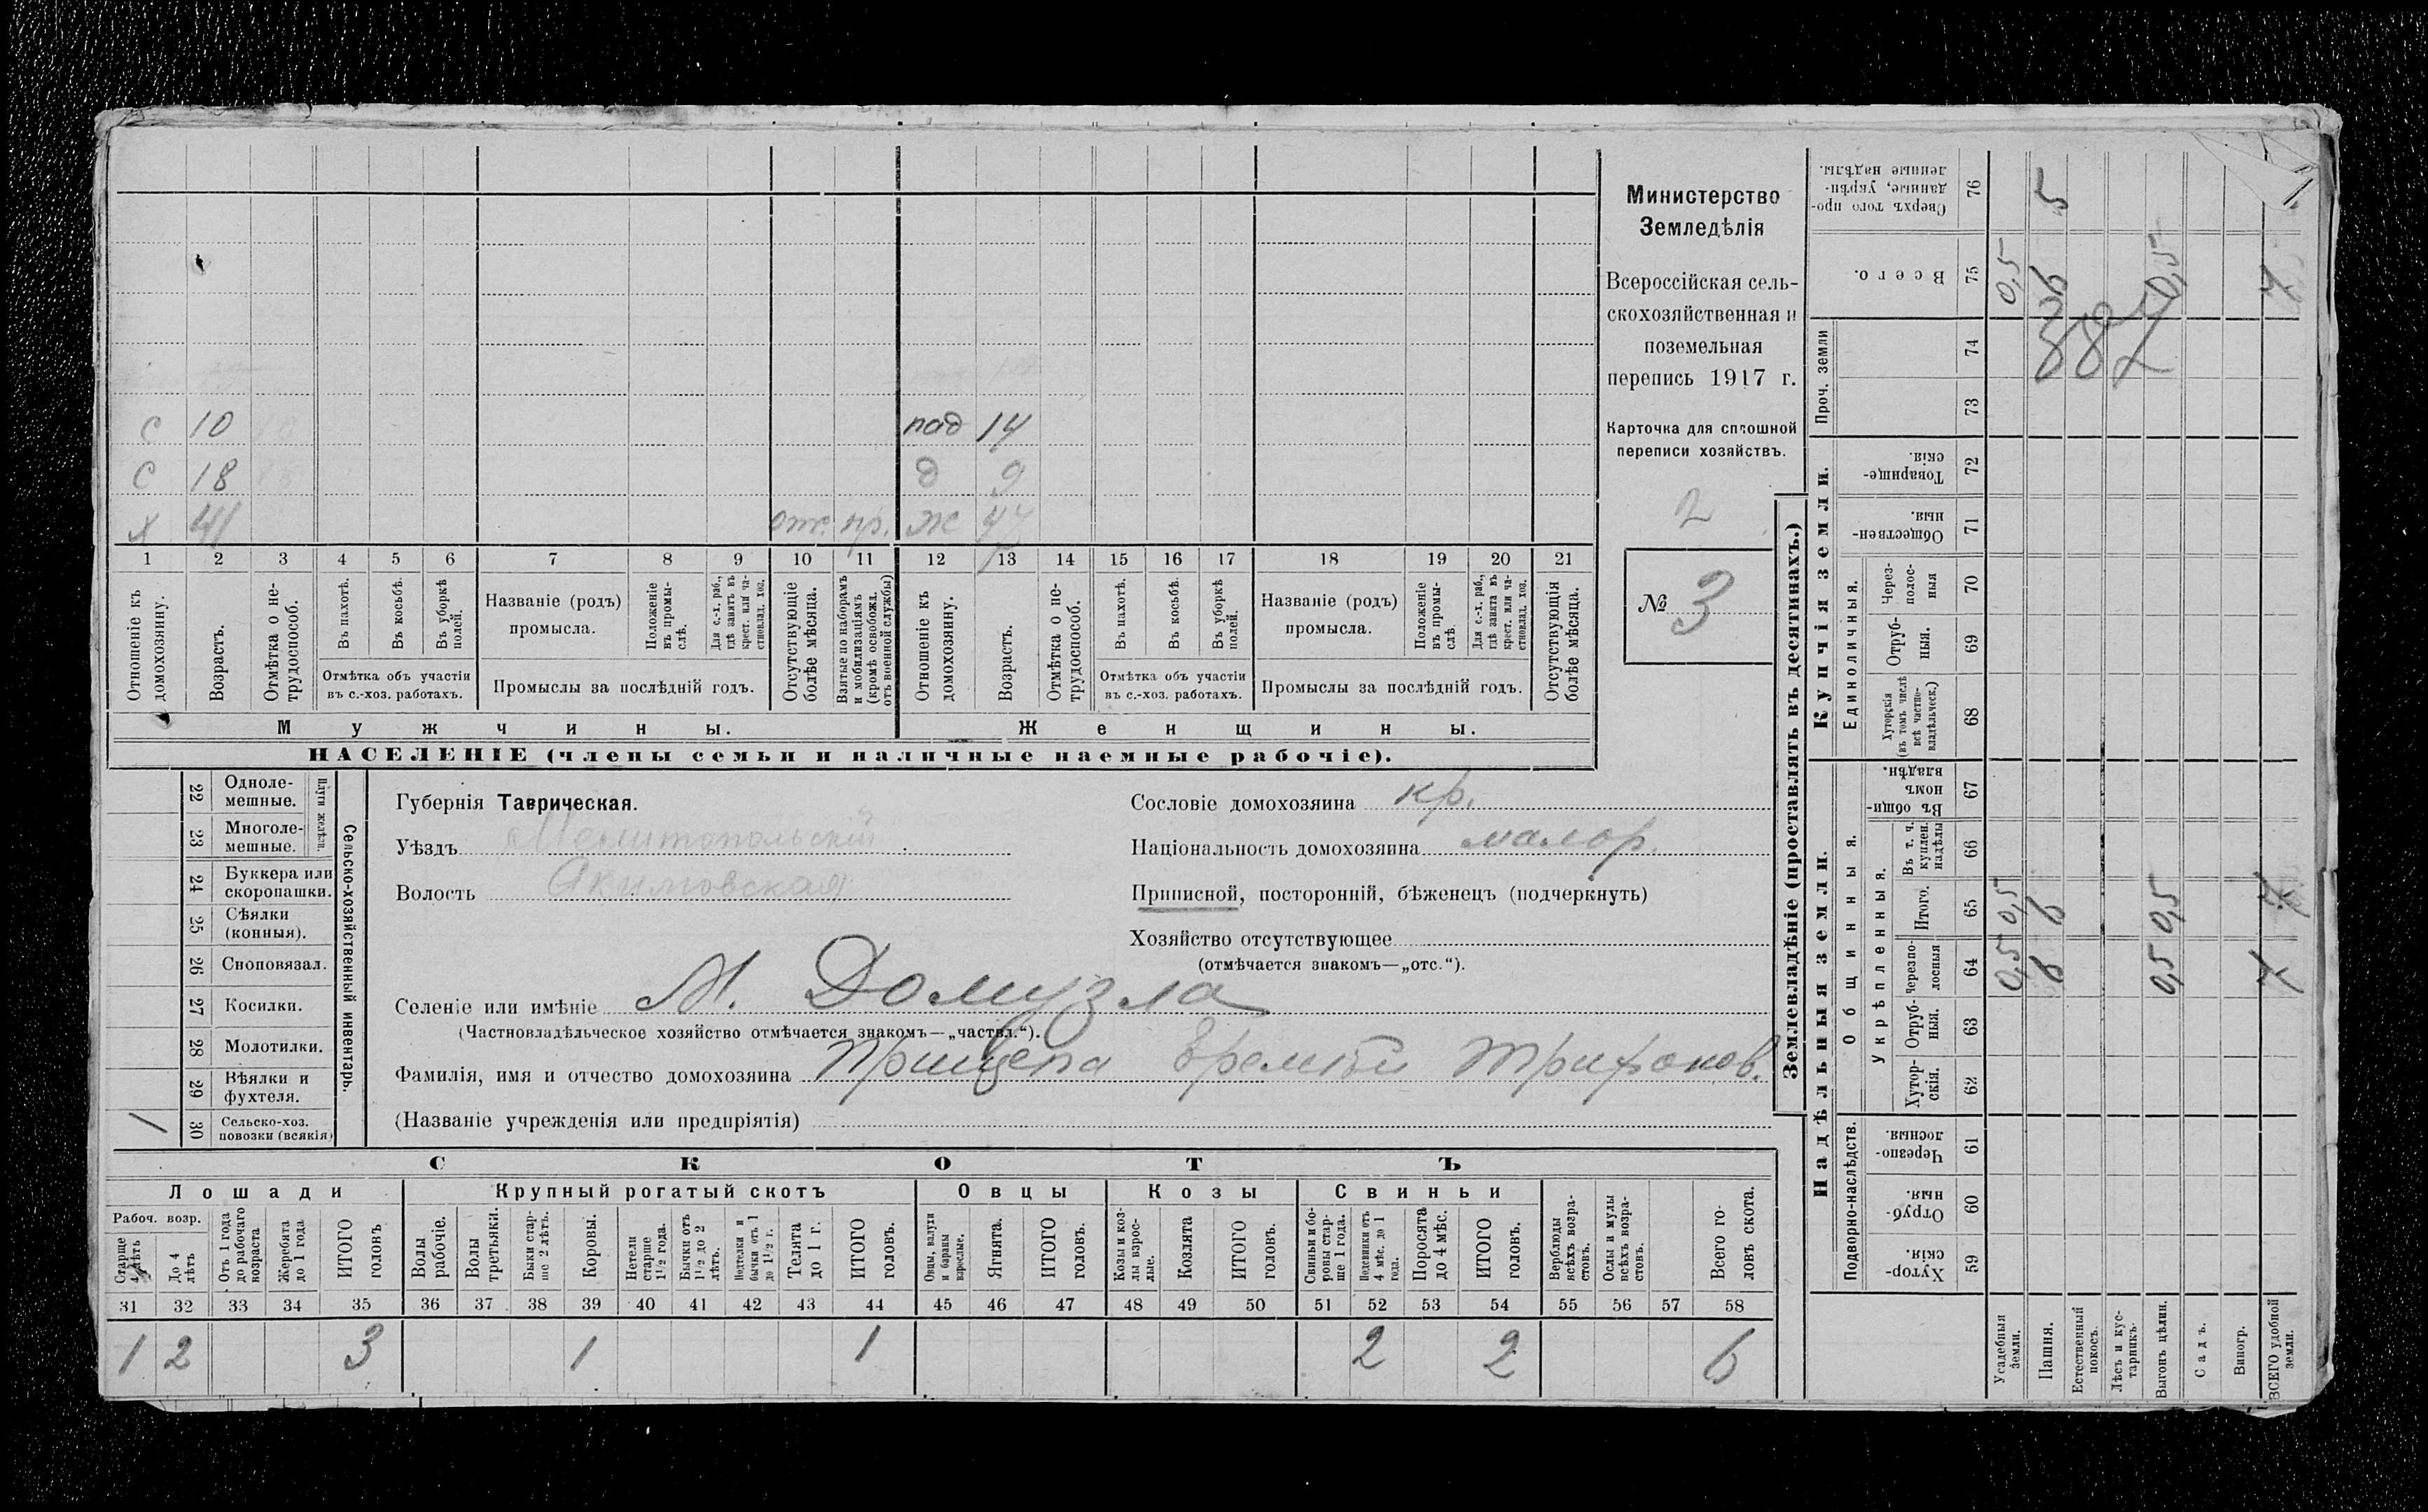 с 10 пад 14
с 18 д 9
х 41 отс. пр. ж 47
1 2 3 4 5 6 7 8 9 10 11 12 13 14 15 16 17 18 19 20 21
Отношеніе къ домохозяину.
Возрастъ.
Отмѣтка о нетрудоспособ.
Въ пахотѣ.
Въ косьбѣ.
Въ уборкѣ полей.
Отмѣтка объ участіи
въ с.-хоз. работахъ.
Названіе (родъ)
промысла.
Положеніе въ промыслѣ.
Для с.-х. раб., гдѣ занятъ въ крест. или частновлад. хоз.
Промыслы за послѣдній годъ.
Отсутствующіе болѣе мѣсяца.
Взятые по наборамъ и мобилизаціямъ (кромѣ освобожд. отъ военной службы)
Отношеніе къ домохозяину.
Возрастъ.
Отмѣтка о нетрудоспособ.
Въ пахотѣ.
Въ косьбѣ.
Въ уборкѣ полей.
Отмѣтка объ участіи
въ с.-хоз. работахъ.
Названіе (родъ)
промысла.
Положеніе въ промыслѣ.
Для с.-х. раб., гдѣ занята въ крест. или частновлад. хоз.
Промыслы за послѣдній годъ.
Отсутствующія болѣе мѣсяца.
Мужчины. Женщины.
НАСЕЛЕНІЕ (члены семьи и наличные наемные рабочіе).
Министерство
Земледѣлія
Всероссійская сель-
скохозяйственная и
поземельная
перепись 1917 г.
Карточка для сплошной
переписи хозяйствъ.
2
№ 3
Сельско-хозяйственный инвентарь.
Плуги желѣзн.
22 Одноле-
мешные.
23 Многоле-
мешные.
24 Буккера или
скоропашки.
25 Сѣялки
(конныя).
26 Сноповязал.
27 Косилки.
28 Молотилки.
29 Вѣялки и
фухтеля.
1 30 Сельско-хоз.
повозки (всякія)
Губернія Таврическая.
Уѣздъ Мелитопольскій
Волость Акимовская
Сословіе домохозяина кр.
Національность домохозяина малор.
Приписной, посторонній, бѣженецъ (подчеркнуть)
Хозяйство отсутствующее
(отмѣчается знакомъ—„отс.“).
Селеніе или имѣніе М. Домузла
(Частновладѣльческое хозяйство отмѣчается знакомъ—„частвл.“).
Фамилія, имя и отчество домохозяина Прищепа Еремѣй Трифонов.
(Названіе учрежденія или предпріятія)
СКОТЪ
Лошади Крупный рогатый скотъ Овцы Козы Свиньи
Рабоч. возр.
Старше 4 лѣтъ
До 4 лѣтъ
Отъ 1 года до рабочаго возраста
Жеребята до 1 года
ИТОГО головъ
Волы рабочіе.
Волы третьяки.
Быки старше 2 лѣтъ.
Коровы.
Нетели старше 1½ года.
Бычки отъ 1½ до 2 лѣтъ.
Подтелки и бычки отъ 1 до 1½ г.
Телята до 1 г.
ИТОГО головъ.
Овцы, валухи и бараны взрослые.
Ягнята.
ИТОГО головъ.
Козы и козлы взрослые.
Козлята
ИТОГО головъ.
Свиньи и боровы старше 1 года.
Подсвинки отъ 4 мѣс. до 1 года.
Поросята до 4 мѣс.
ИТОГО головъ.
Верблюды всѣхъ возрастовъ.
Ослы и мулы всѣхъ возрастовъ.
Всего головъ скота.
31 32 33 34 35 36 37 38 39 40 41 42 43 44 45 46 47 48 49 50 51 52 53 54 55 56 57 58
1 2 3 1 1 2 2 6
Землевладѣніе (проставлять въ десятинахъ.)
Купчія земли.
Надѣльныя земли.
Сверхъ того проданные, укрѣпленные надѣлы. 76 5
Всего. 75 0,5 6 0,5 7
Проч. земли 74 73
387
Товарищескія. 72
Общественныя. 71
Единоличныя.
Черезполосныя 70
Отрубныя. 69
Хуторскія (въ томъ числѣ всѣ частновладѣльческ.) 68
Общинныя.
Въ общинномъ владѣн. 67
Укрѣпленныя.
Въ т. ч. куплен. надѣлы 66
Итого. 65 0,5 6 0,5 7
Черезполосныя 64 0,5 6 0,5 7
Отрубныя. 63
Хуторскія. 62
Подворно-наслѣдств.
Черезполосныя. 61
Отрубныя. 60
Хуторскія. 59
Усадебныя земли.
Пашня.
Естественный покосъ.
Лѣсъ и кустарникъ.
Выгонъ цѣлин.
Садъ.
Виногр.
ВСЕГО удобной земли.